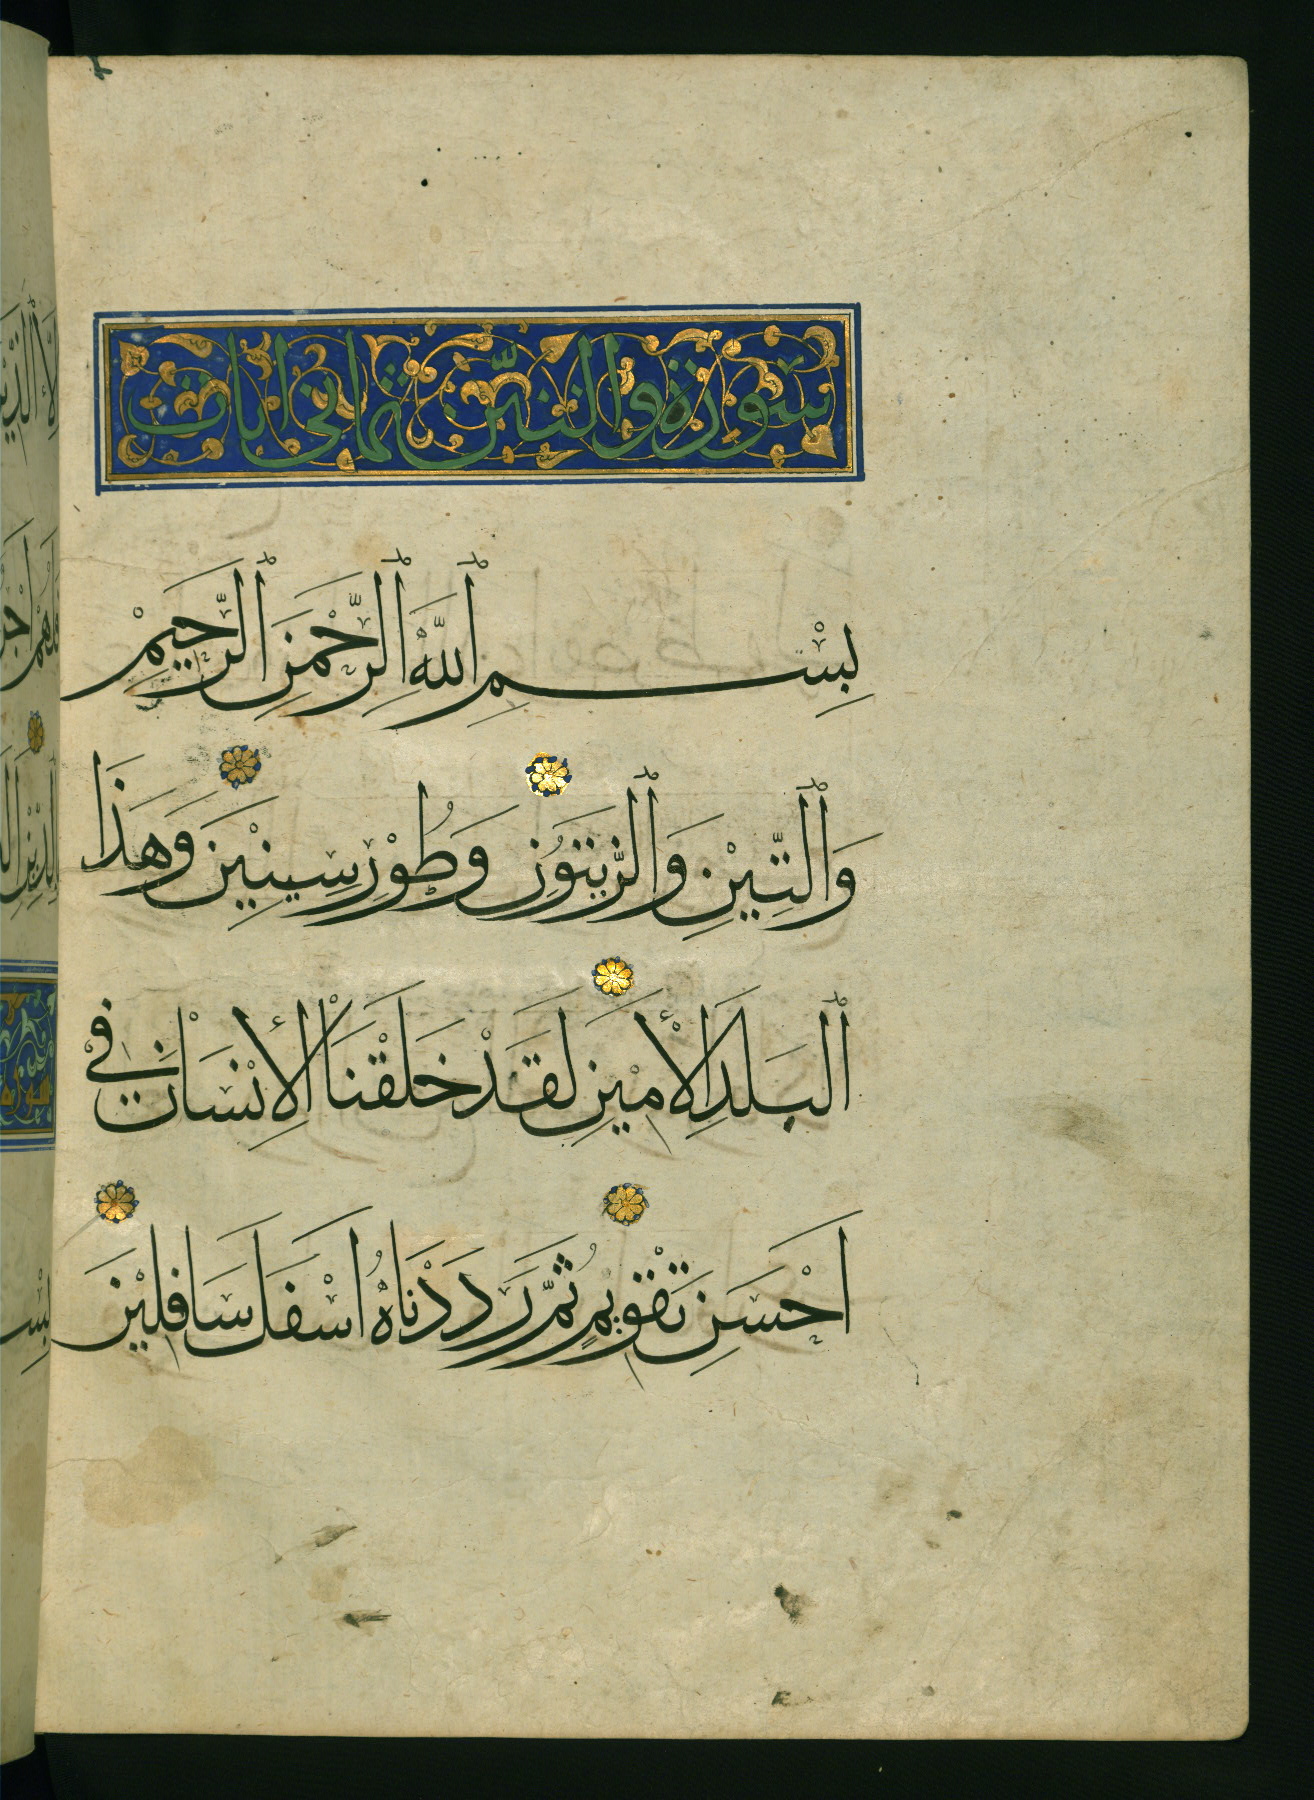 سورة والتين ثماني ايات
بِسْمِ ٱللَّهِ ٱلرَّحْمَنِ ٱلرَّحِيمْ
وَٱلتِّيْنِ وَٱلزَّيتَوُنِ وَطُوْرِ سِينِيْنَ وَهَذَا
ٱلبَلَدِ الْأَمِيْنِ لَقَدْ خَلَقْنَا الْأِنْسَانَ فِي
اَحْسَنِ تَقْوِيمٍ ثُمَّ رَدَدْنَاهُ اَسْفَلَ سَافِلِيْنَ